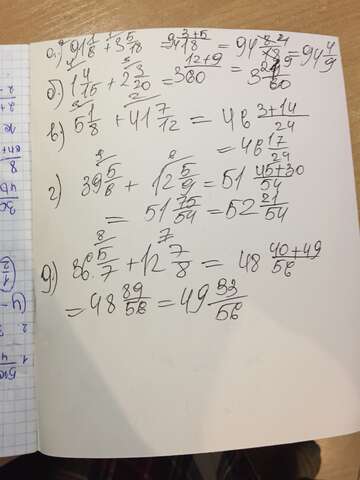 а) 91 1/8 + 3 5/18 = 94 3+5/18 = 94 8/18 = 94 4/9
б) 1 4/15 + 2 3/20 = 3 12+9/60 = 3 21/60
в) 5 1/8 + 41 7/12 = 46 3+14/24
= 46 17/24
г) 39 5/6 + 12 5/9 = 51 45+30/54
= 51 75/54 = 52 21/54
д) 36 5/7 + 12 7/8 = 48 40+49/56
= 48 89/56 = 49 33/56